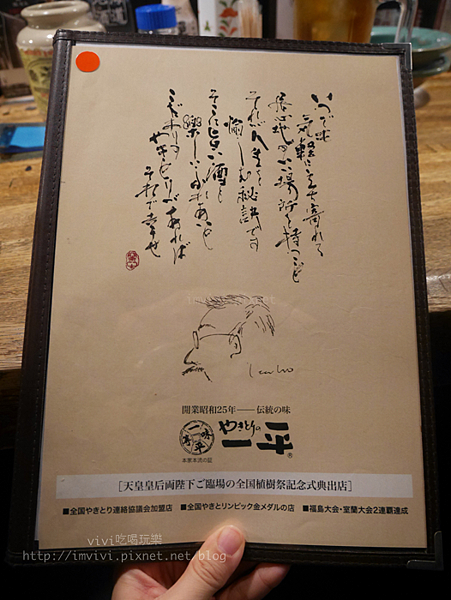 いつでも
気軽に立ち寄れる
居心地のいい場所を持つこと
それが人生を
愉しむ秘訣です
そこに旨い酒と
楽しいふれあいと
やきとりがあれば
それで幸せ
開業昭和25年――伝統の味
本家本流の証
やきとりの
一平®
[天皇皇后両陛下ご臨場の全国植樹祭記念式典出店]
■全国やきとり連絡協議会加盟店 ■全国やきとリンピック金メダルの店 ■福島大会・室蘭大会2連覇達成
vivi吃喝玩樂
http://imvivi.pixnet.net/blog